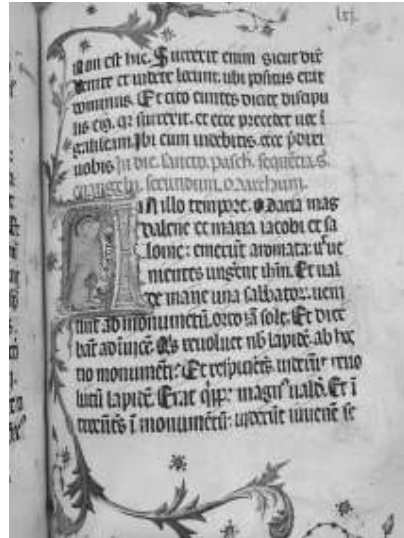 lxj.
Non est hic. Surrexit enim sicut dix̄
venite et videte locum. ubi positus erat
dominus. Et cito euntes dicite discipu
lis eiꝰ. qꝛ surrexit. et ecce precedet vos ī
galileam. Ibi eum videbitis. ecce p̄dixi
vobis In die. sancto. pasch. sequētia. s.
euangelii. secundum. Marchum.
In illo tempore. Maria mag
dalene et maria iacobi et sa
lome: emerūt aromata: ut ve
nientes ungerent ihm̄. Et val
de mane una sabbatoꝝ: veni
unt ad monumentū. orto iā sole. Et dice
bāt ad īvicē. Qͥs revolvet nob̄ lapidē ab hos
tio monumēti: Et respiciētes viderūt revo
lutū lapidē. Erat q̄ippe magnꝰ valde. Et ī
troeūtes ī monumētū: viderūt iuvenē se